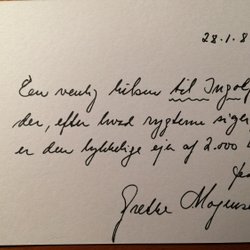 28.1.8
Een venlig hilsen til Ingolf
der, efter hvad rygterne siger
er den lykkelige ejer af 2.000
Grethe Mogense